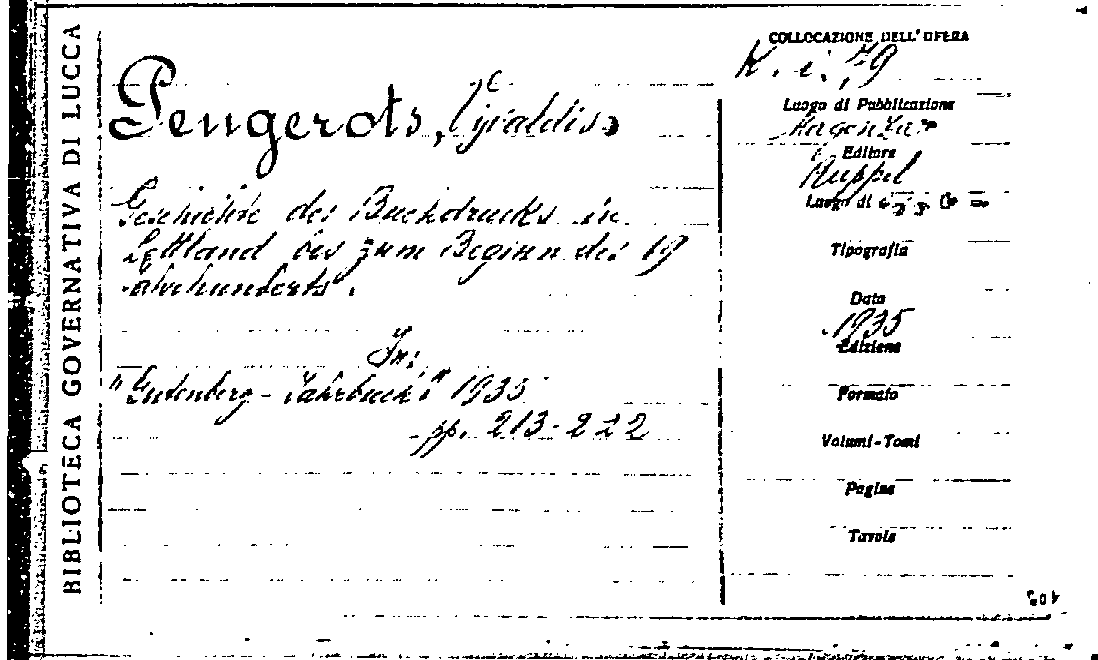 BIBLIOTECA GOVERNATIVA DI LUCCA
Pengerots,
Geschichte des Buchdrucks in
Lettland bis zum Beginn des 19
Jahrhunderts.
In:
"Gutenberg-Jahrbuch" 1935
pp. 213-222
COLLOCAZIONE DELL'OPERA
K. i. 79
Luogo di Pubblicazione
Magonza
Editore
Ruppel
Luogo di
Tipografia
Data
1935
Edizione
Formato
Volumi-Tomi
Pagine
Tavole